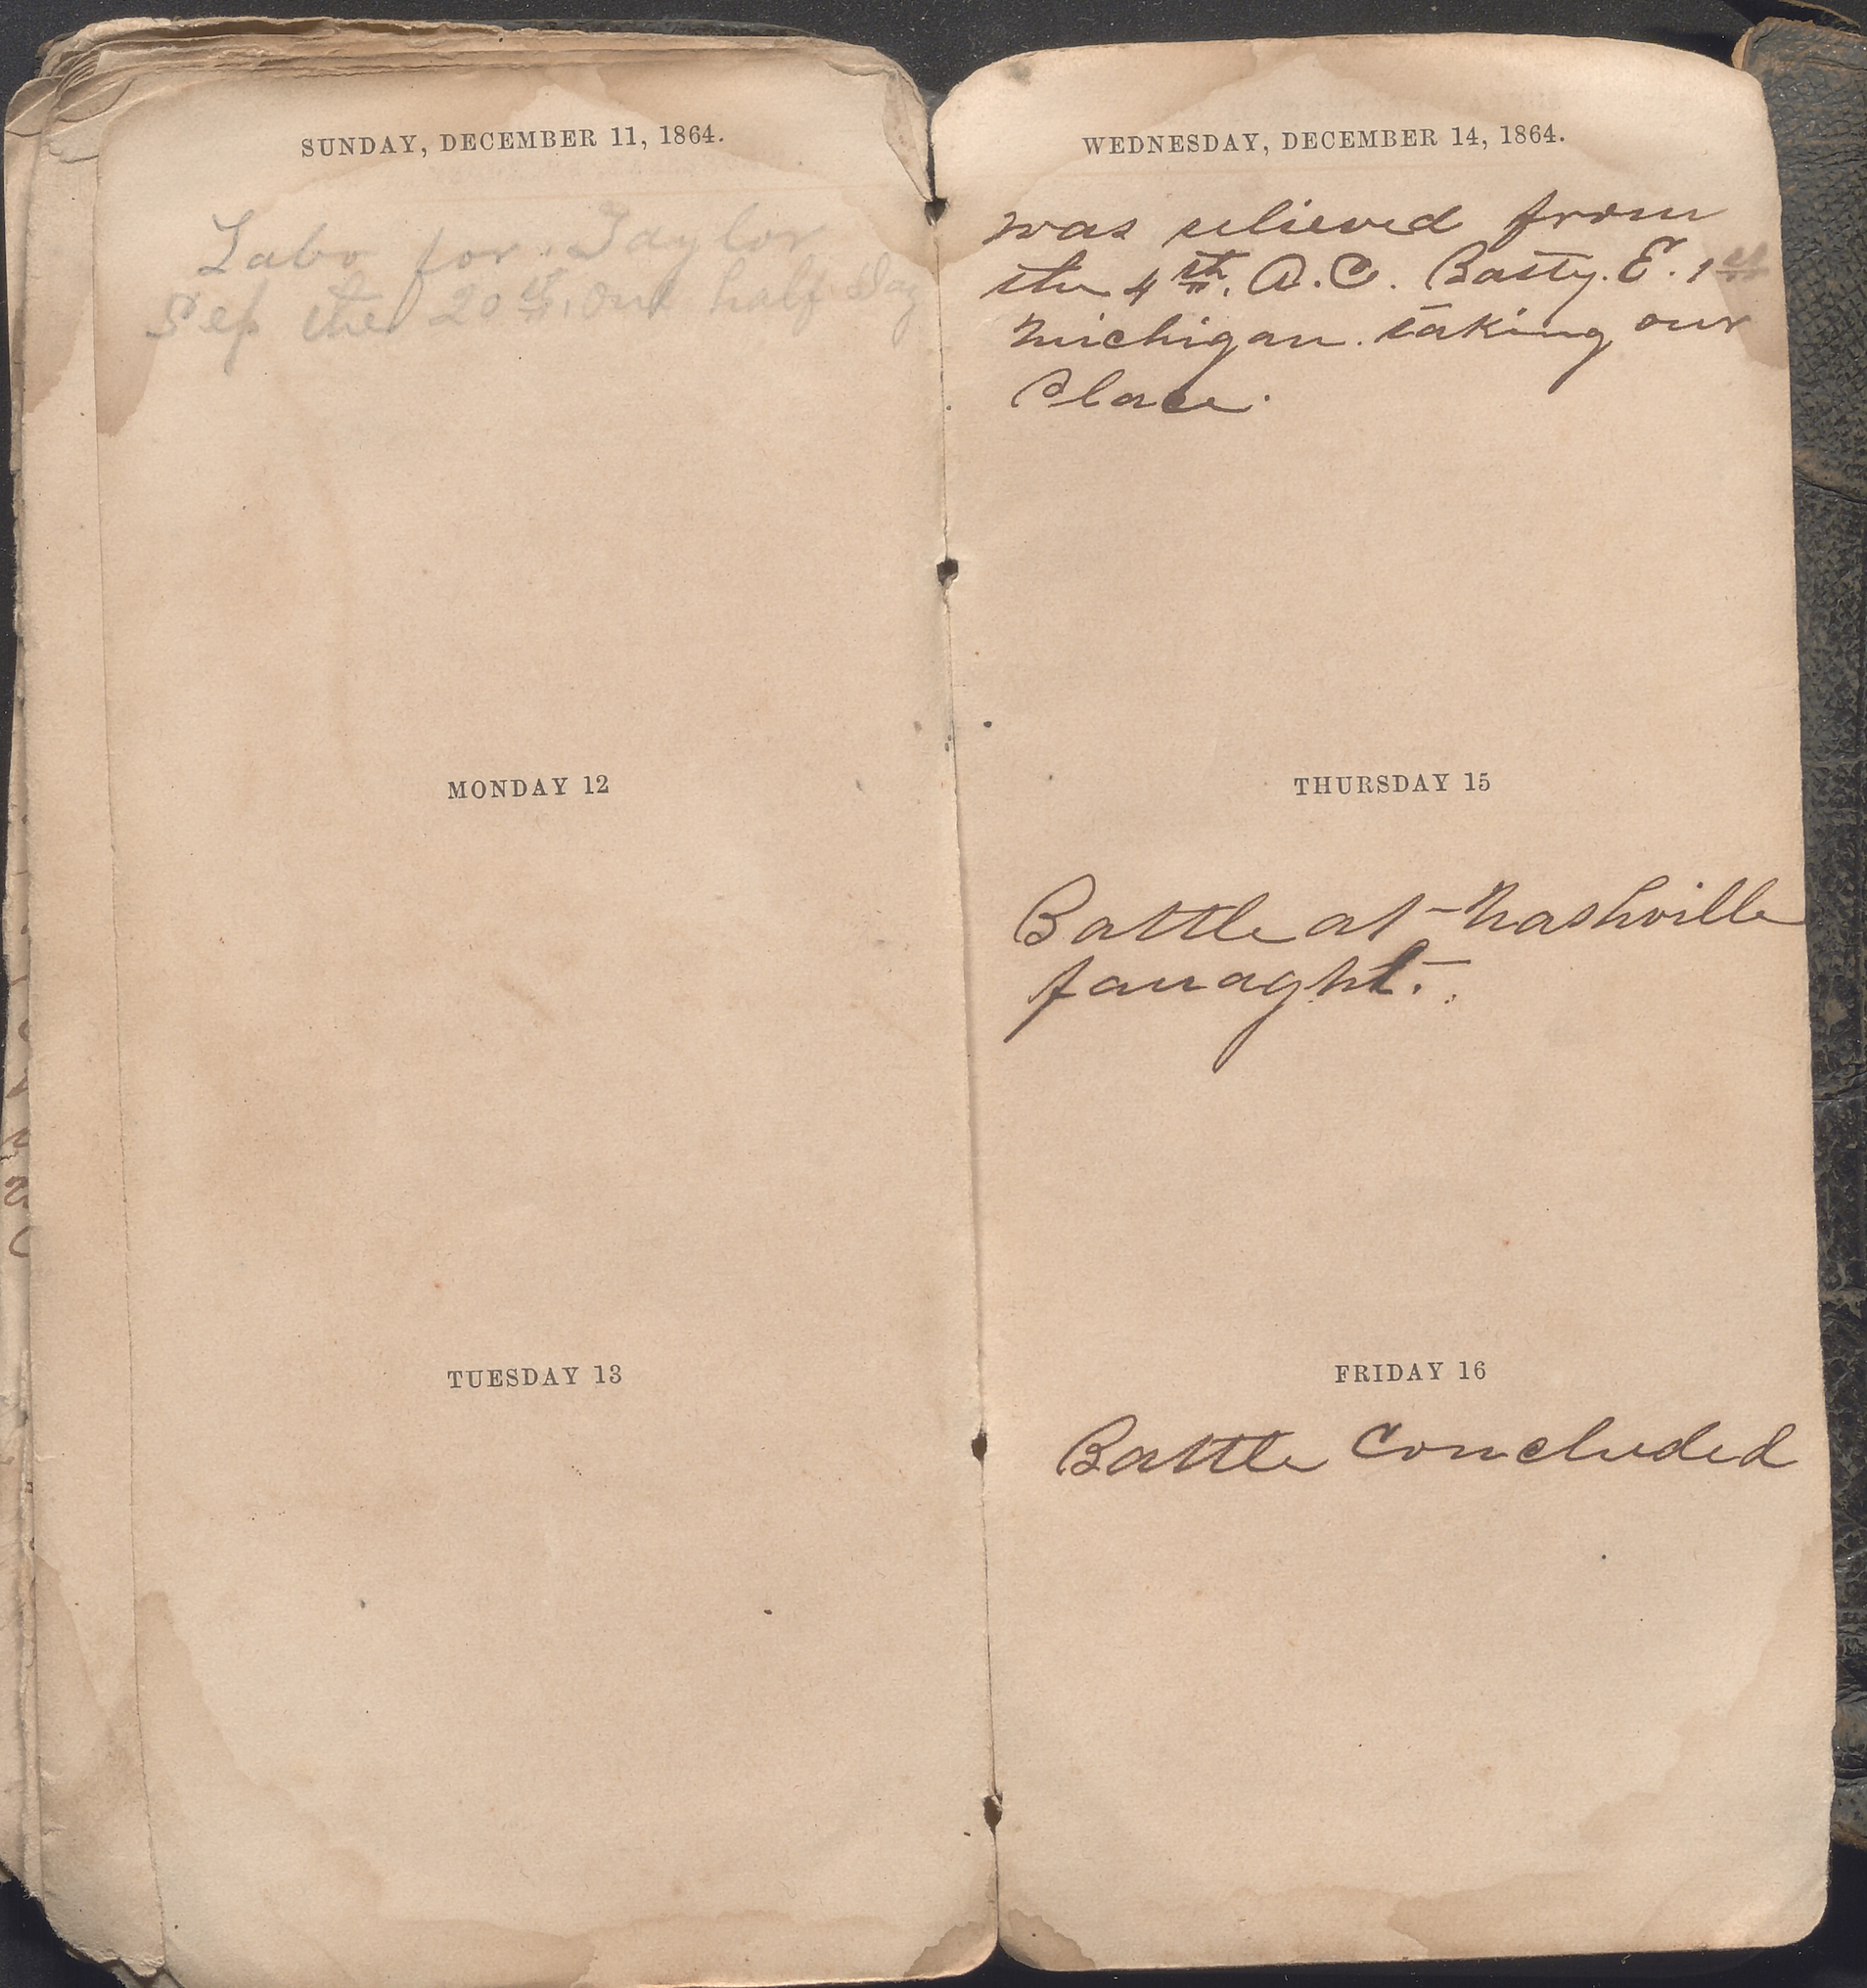 SUNDAY, DECEMBER 11, 1864.
Labo for. Taylor
Sep the 20th, one half Day
MONDAY 12
TUESDAY 13
WEDNESDAY, DECEMBER 14, 1864.
was relieved from
the 4th. A.C. Batty. E. 1st
Michigan. taking our
Place.
THURSDAY 15
Battle at Nashville
fauaght.
FRIDAY 16
Battle Concluded